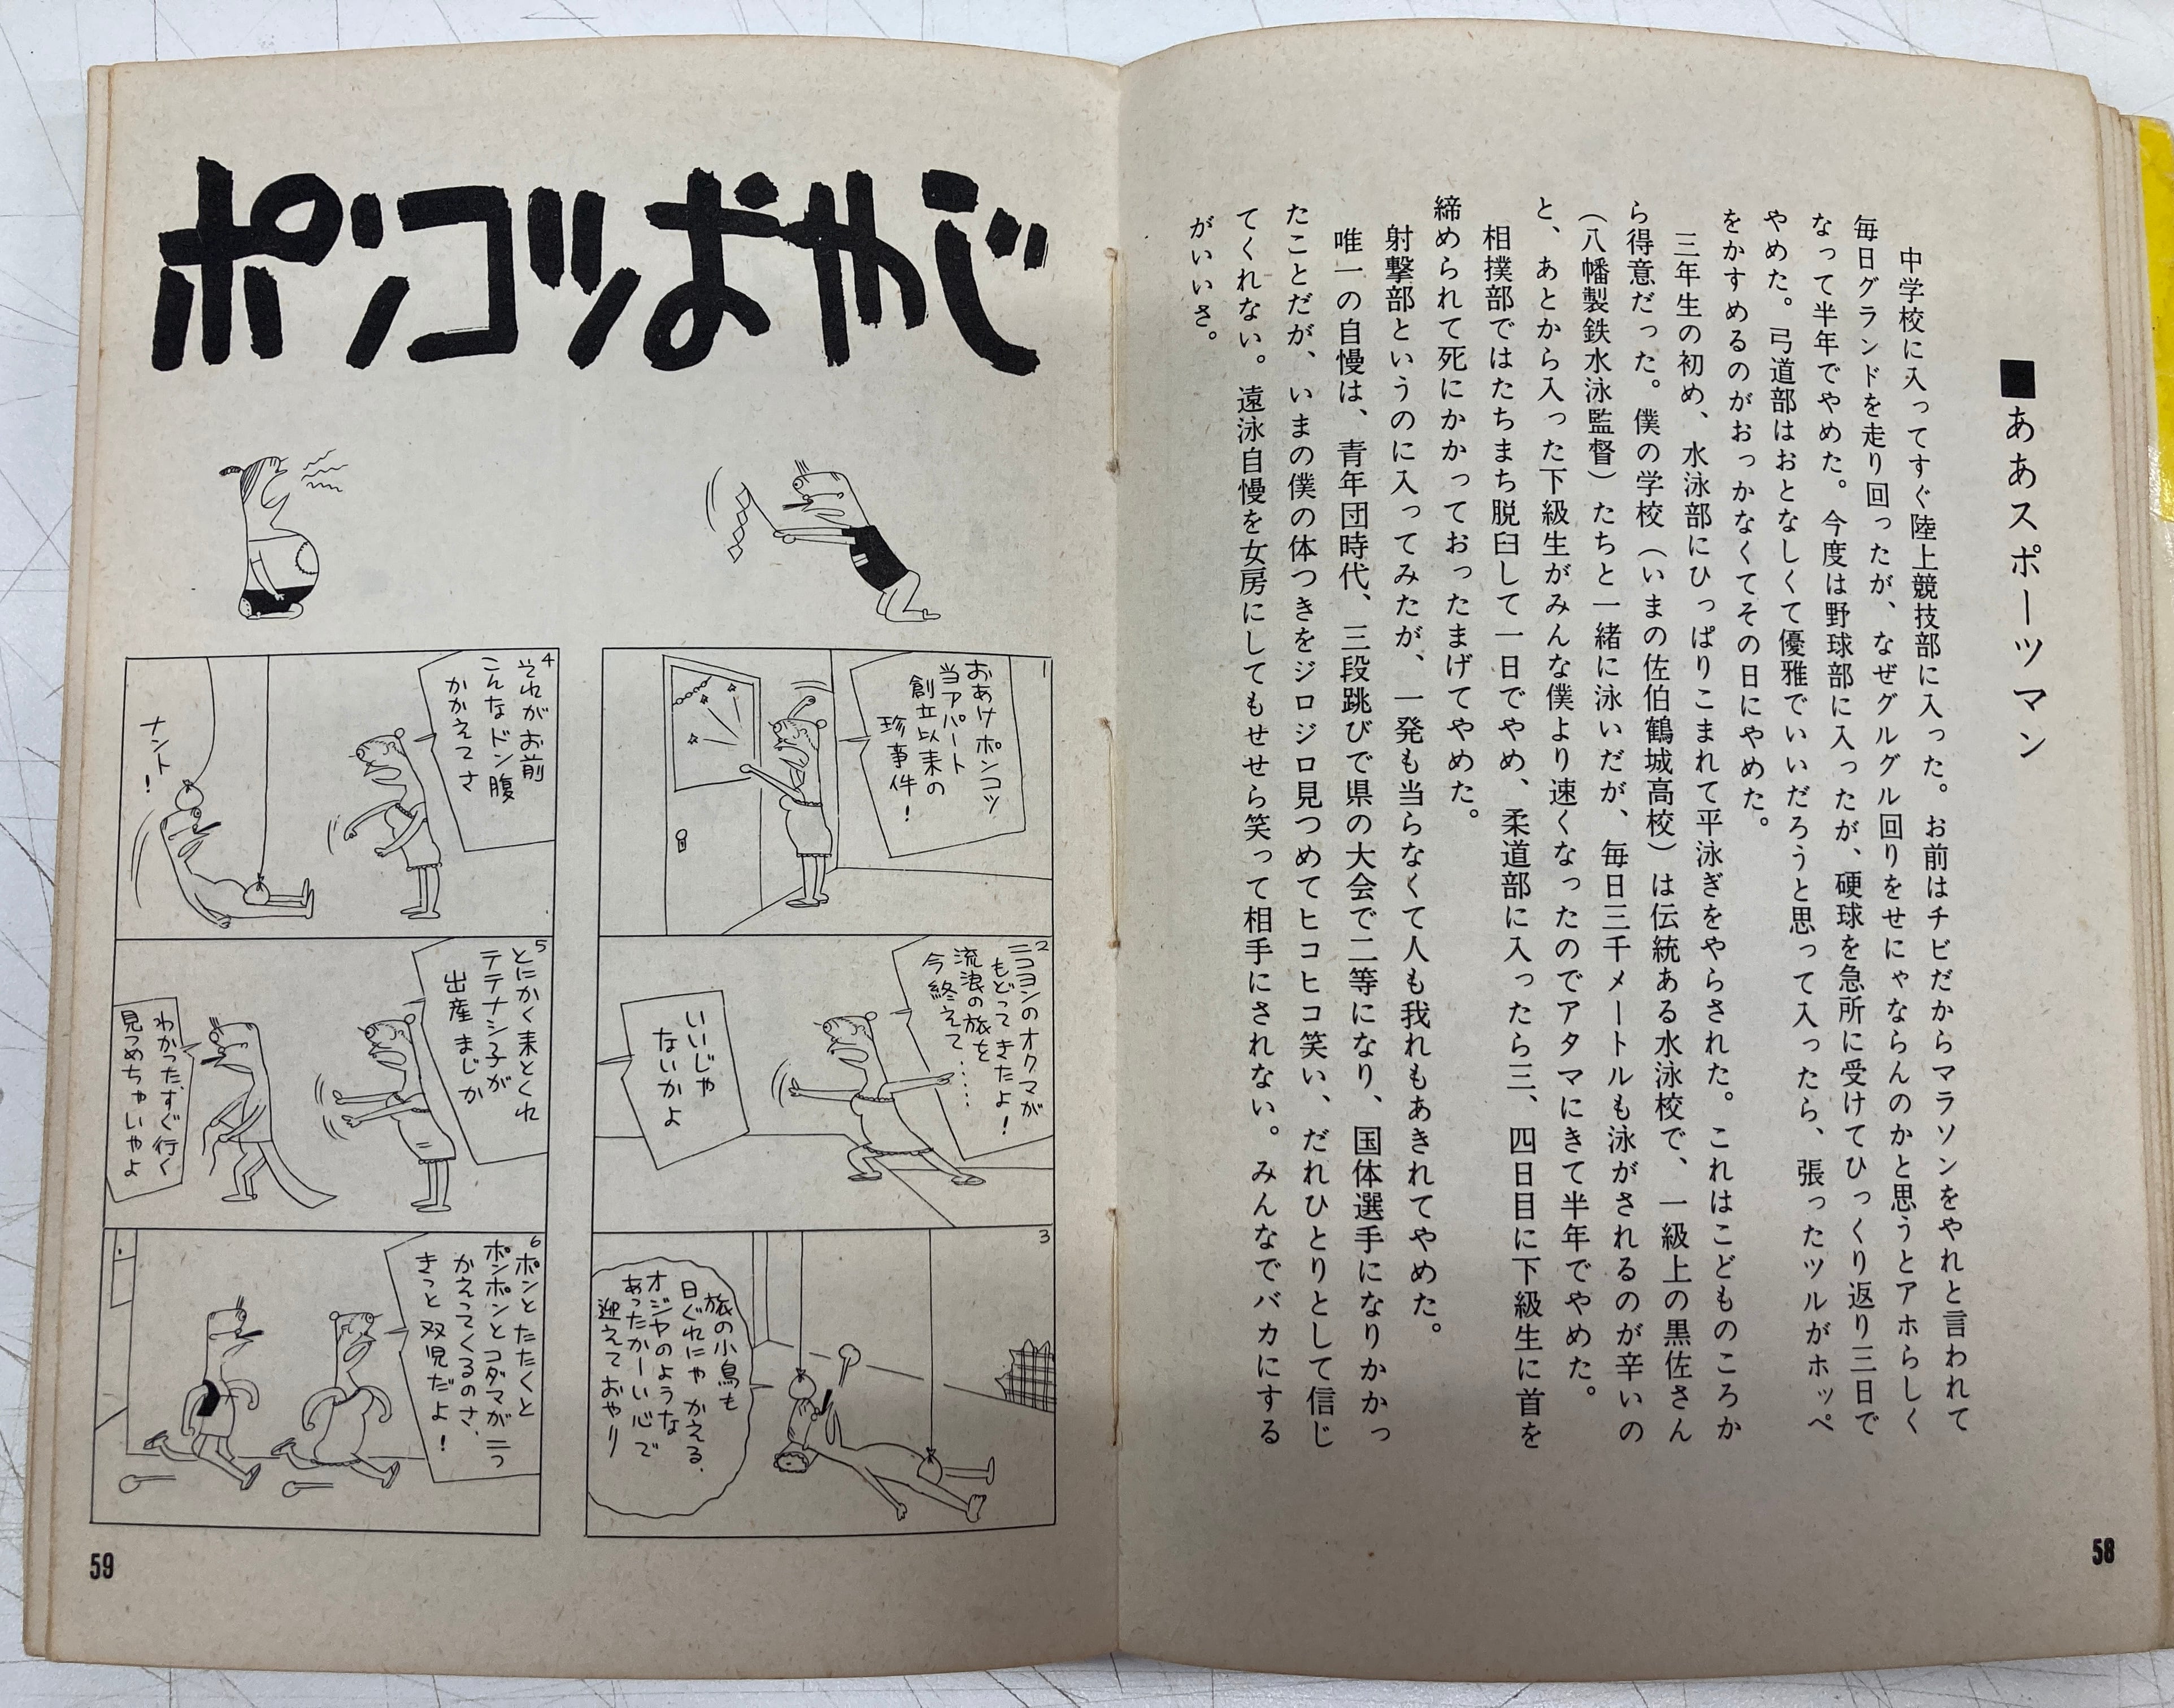 ■ああスポーツマン
中学校に入ってすぐ陸上競技部に入った。お前はチビだからマラソンをやれと言われて
毎日グランドを走り回ったが、なぜグルグル回りをせにゃならんのかと思うとアホらしく
なって半年でやめた。今度は野球部に入ったが、硬球を急所に受けてひっくり返り三日で
やめた。弓道部はおとなしくて優雅でいいだろうと思って入ったら、張ったツルがホッペ
をかすめるのがおっかなくてその日にやめた。
三年生の初め、水泳部にひっぱりこまれて平泳ぎをやらされた。これはこどものころか
ら得意だった。僕の学校（いまの佐伯鶴城高校）は伝統ある水泳校で、一級上の黒佐さん
（八幡製鉄水泳監督）たちと一緒に泳いだが、毎日三千メートルも泳がされるのが辛いの
と、あとから入った下級生がみんな僕より速くなったのでアタマにきて半年でやめた。
相撲部ではたちまち脱臼して一日でやめ、柔道部に入ったら三、四日目に下級生に首を
締められて死にかかっておったまげてやめた。
射撃部というのに入ってみたが、一発も当らなくて人も我れもあきれてやめた。
唯一の自慢は、青年団時代、三段跳びで県の大会で二等になり、国体選手になりかかっ
たことだが、いまの僕の体つきをジロジロ見つめてヒコヒコ笑い、だれひとりとして信じ
てくれない。遠泳自慢を女房にしてもせせら笑って相手にされない。みんなでバカにする
がいいさ。
58
ポンコツおやじ
1
おあけポンコツ
当アパート
創立以来の
珍事件！
2
ニコヨンのオクマが
もどってきたよ！
流浪の旅を
今終えて……
いいじゃ
ないかよ
3
旅の小鳥も
日ぐれにゃかえる、
オジヤのような
あったかーい心で
迎えておやり
4
それがお前
こんなドン腹
かかえてさ
ナント！
5
とにかく来とくれ
テテナシ子が
出産まじか
わかった、すぐ行く
見つめちゃいやよ
6
ポンとたたくと
ポンポンとコダマが二つ
かえってくるのさ、
きっと双児だよ！
59